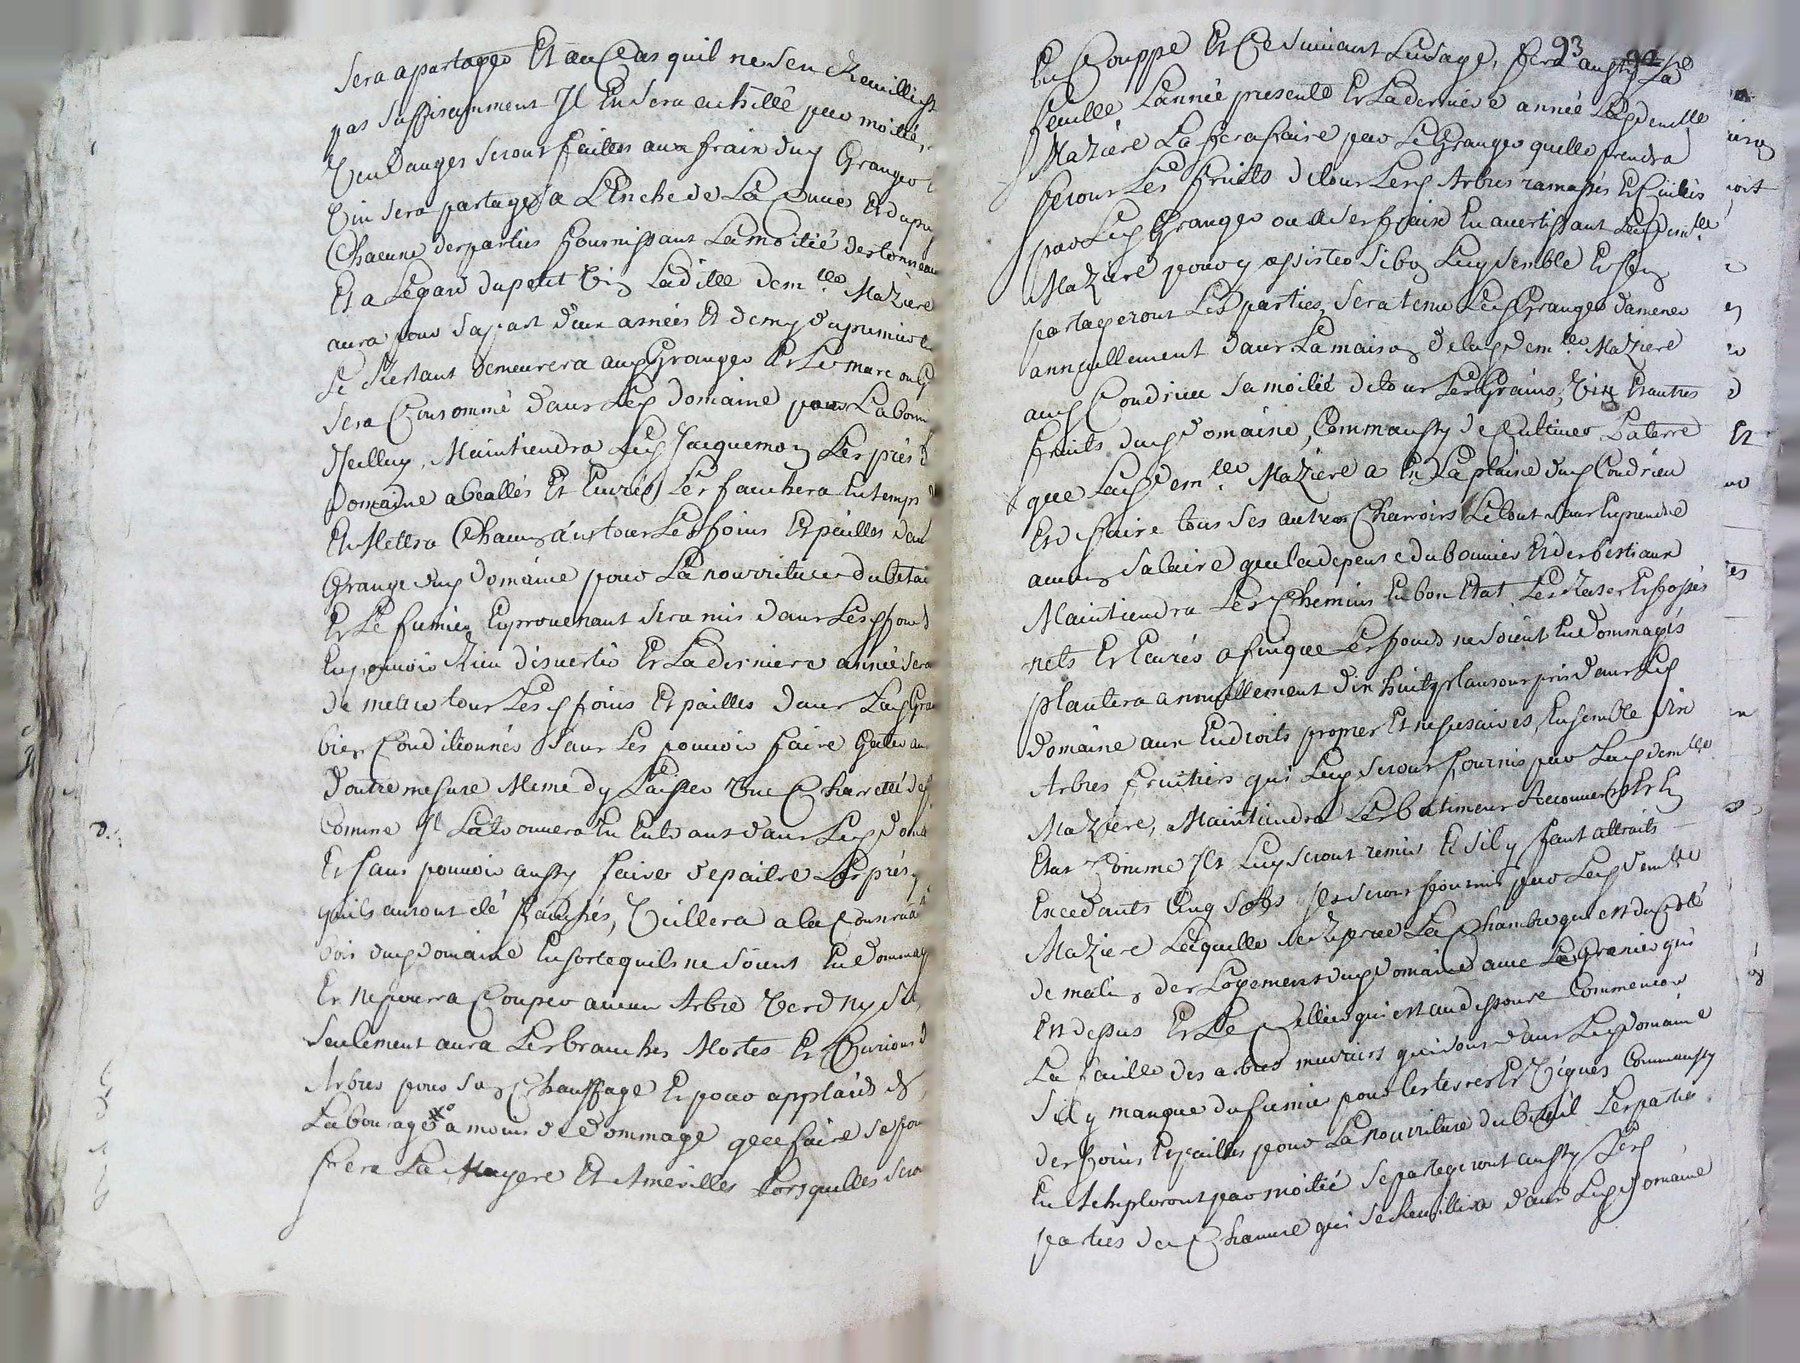 sera a partager Et au Cas quil ne sen Recueillist
pas suffisamment Jl En sera achetté par moitié,
Vendanges seront faittes aux frais dud Granger
Vin sera partagé a L'Enche de La Cuve Et
Chacune des parties fournissant La moitié des tonneaux
Et a Legard du petit Vin Laditte dem.lle Maziere
aura pour sa part deux asnées Et demy du premier
Le Restant demeurera aud Granger Et Le marc
sera Consommé dans Led domaine pour La
Maintiendra Led Jacquemon Les prés
Domaine abeallés Et Curés Les fauchera En temps
Et Mettra Chacun an tous Les foins Et pailles dans
Grange dud domaine pour La nourriture du betail
Et Le fumier En provenant sera mis dans Les fonds
En pouvoir Rien divertir Et La derniere année sera
de mettre tous Les foins Et pailles dans Lad
bien Conditionnés sans Les pouvoir faire Gater
d'outre mesure Meme dy Laisser Une Charrettée
Comme Jl La trouvera En Entrant dans Led
Et sans pouvoir aussy faire depaitre Les prés
quils auront été fauchés, Veillera a la Conservation
bois dud domaine En sorte quils ne soient Endommagés
Et ne pourra Couper aucun Arbre Verd ny
seulement aura Les branches Mortes Et
Arbres pour son Chauffage Et pour applaids
Labourage a moins de dommage que faire se pourra
fera La Mayere Et Amerilles Lorsquelles seront
93
En Couppe Et Ce suivant Lusage, fera aussy La
feuille Lannée presente Et La derniere année Lad demlle
Maziere La fera faire par Le Granger quelle prendra
seront Les fruits de tous Les Arbres ramassés Et Cuillis
par Led Granger a ses frais En avertissant Lad demlle
Maziere pour y assister si bon Luy semble Et
partageront Les parties, sera tenu Led Granger damener
annuellement dans La maison de lad demlle Maziere
aud Condrieu sa moitié de tous Les Grains, Vin Et autres
fruits dud domaine, Comm aussy de Cultiver La terre
que Lad demlle Maziere a En La plaine dud Condrieu
Et de faire tous ses autres Charrois Le tout sans En prendre
aucun salaire que la depense du bouvier Et des bestiaux
Maintiendra Les Chemins En bon Etat Les Et fossés
nets Et Curés afin que Les fonds ne soient Endommagés
plantera annuellement dix huit plansons pris dans Led
domaine aux Endroits propres Et nessesaires, Ensemble six
Arbres fruitiers qui Luy seront fournis par Lad demlle
Maziere, Maintiendra Les batimens Recouverts Et En
Etat Comme Jls Luy seront remis Et sil y faut attraits
Excedants Cinq sols Jls seront fournis par Lad demlle
Maziere Laquelle se Reserve La Chambre qui est du Coté
de matin des Logements dud domaine avec Le Grenier qui
Est dessus Et Le Cellier qui est au dessous Comm encore
La faille des arbres muriers qui sont dans Led domaine
Sil y manque du fumier pour les terres Et Vignes Comm aussy
des foins Et pailles pour La nourriture du betail Les parties
En Achepteront par moitié se partageront aussy Les
parties de Chanvre qui se Recuillira dans Led domaine